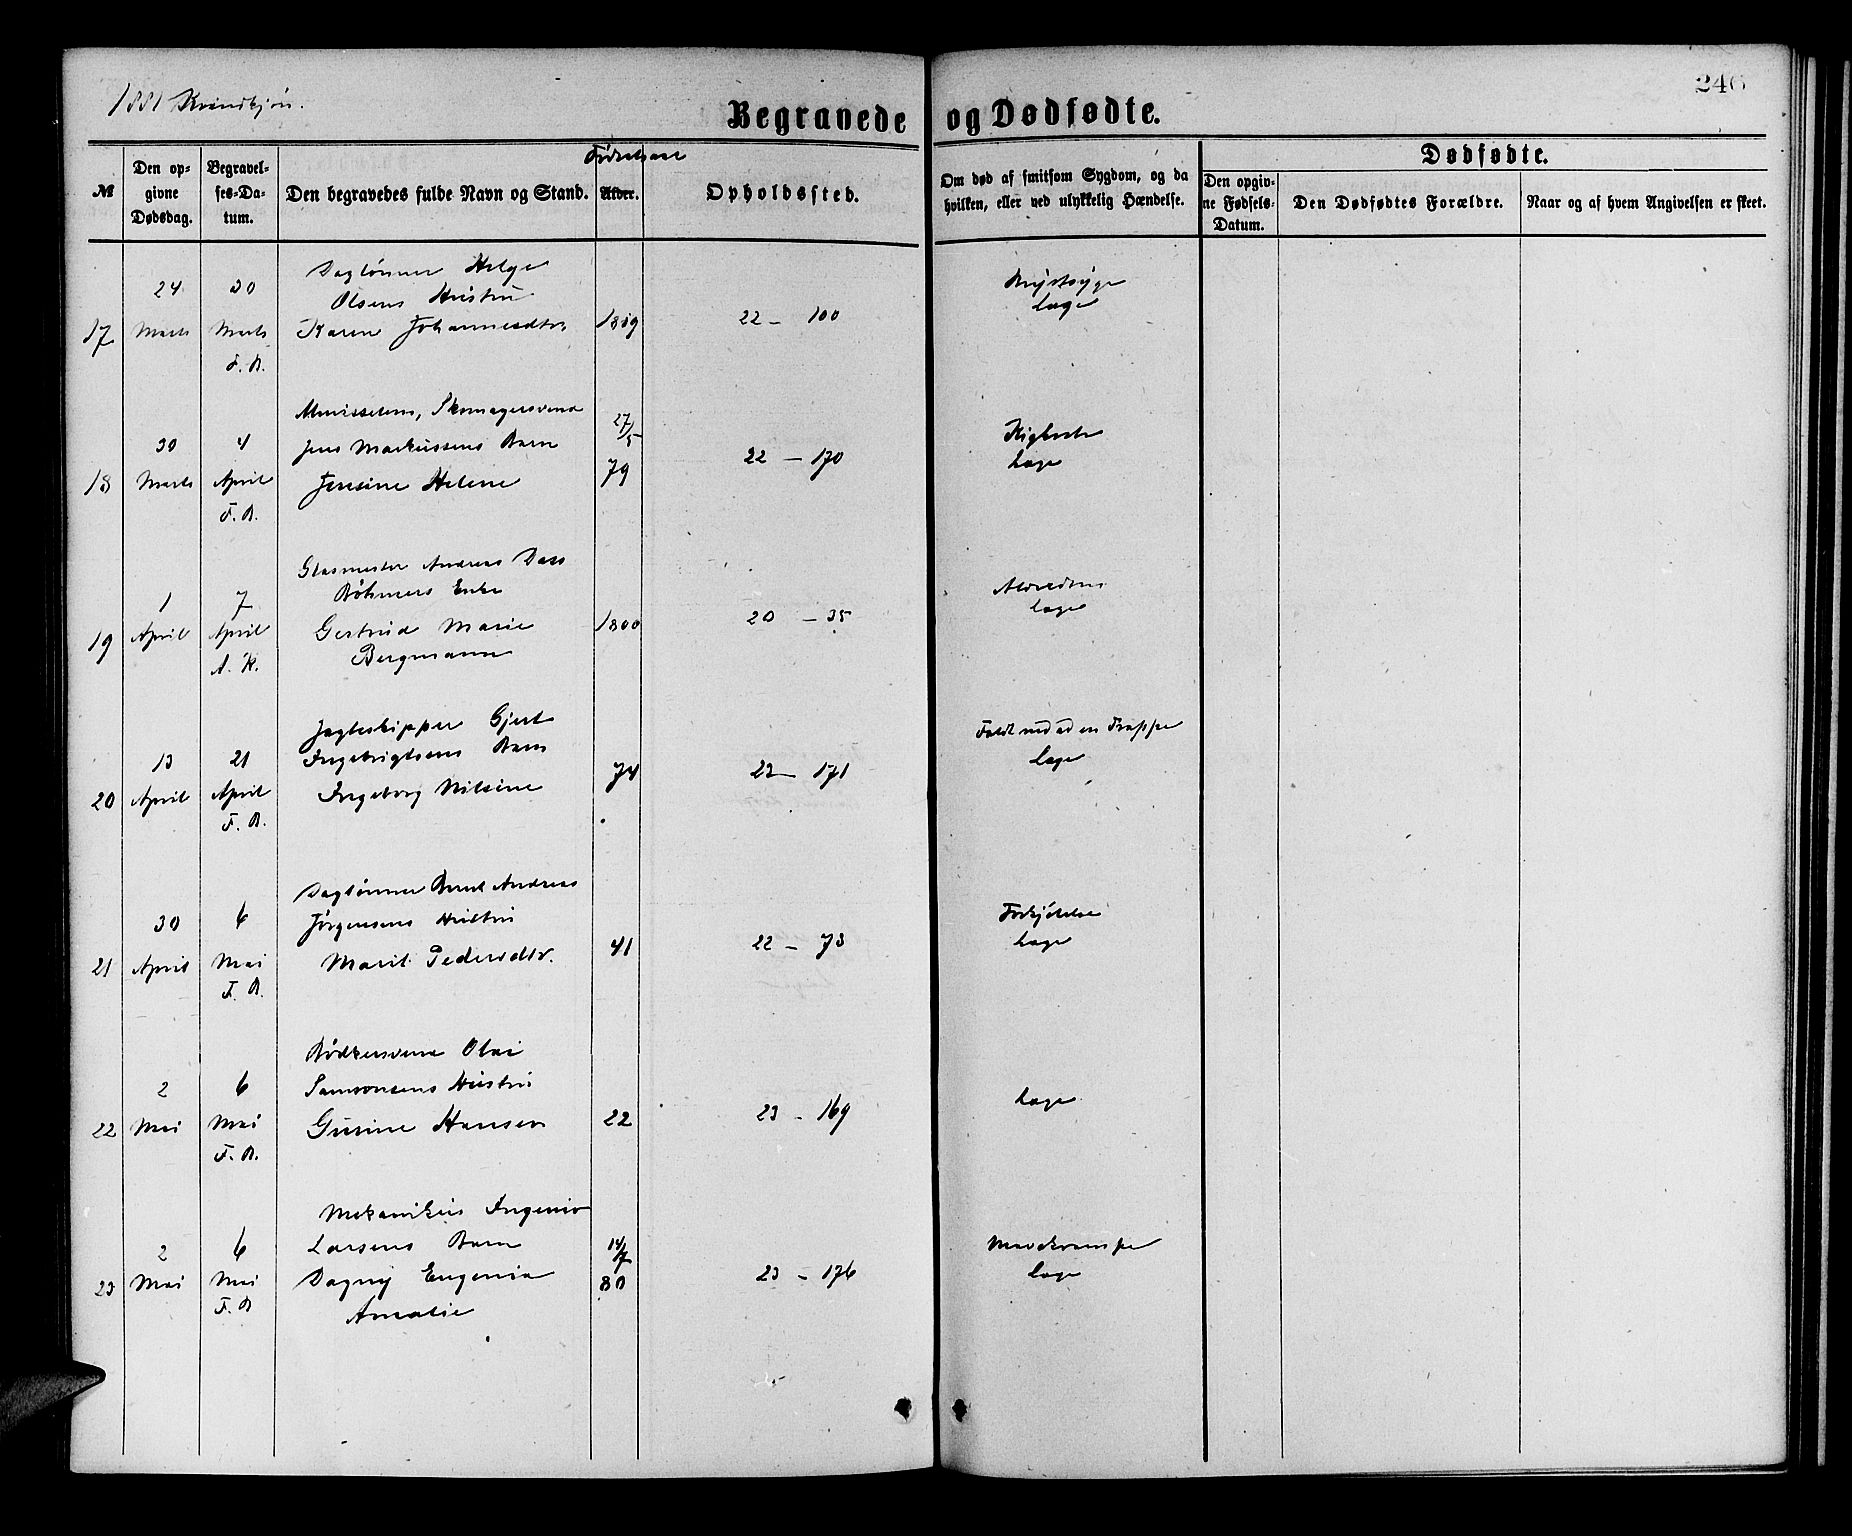 1881 Kvindkjøn.
246
Begravede og Dødfødte.
№
Den op-
givne
Dødsdag.
Begravel-
ses-Da-
tum.
Den begravedes fulde Navn og Stand.
Fødselsaar
Alder.
Opholdssted.
Om død af smitsom Sygdom, og da
hvilken, eller ved ulykkelig Hændelse.
Dødfødte.
Den opgiv-
ne Fødsels-
Datum.
Den Dødfødtes Forældre.
Naar og af hvem Angivelsen er skeet.
17
24
Marts
30
Marts
F. B.
Daglønner Helge
Olsens Hustru
Karen Johannesdtr
1819
22 – 100
Brystsyge
Læge
18
30
Marts
4
April
F. B.
Almisselem, Skomagersvend
Jens Markussens Barn
Jensine Helene
27/5
79
22 – 170
Kighoste
Læge
19
1
April
7
April
A. K.
Glasmester Andreas Dass
Bøhmers Enke
Gertrud Marie
Bergmann
1800
20 – 35
Alderdom
Læge
20
13
April
21
April
F. B.
Jagteskipper Gjert
Ingebrigtsens Barn
Ingeborg Nilsine
74
22 – 171
Faldt ned ad en Trappe
Læge
21
30
April
6
Mai
F. B.
Daglønner Bernt Andreas
Jørgensens Hustru
Marit Pedersdtr.
41
22 – 73
Forkjølelse
Læge
22
2
Mai
6
Mai
F. B.
Bødkersvend Olai
Samsonsens Hustru
Gurine Hansen
22
23 – 169
Læge
23
2
Mai
6
Mai
F. B
Mekanikus Ingenius
Larsens Barn
Dagny Eugenia
Amalie
14/7
80
23 – 176
Mavekrampe
Læge